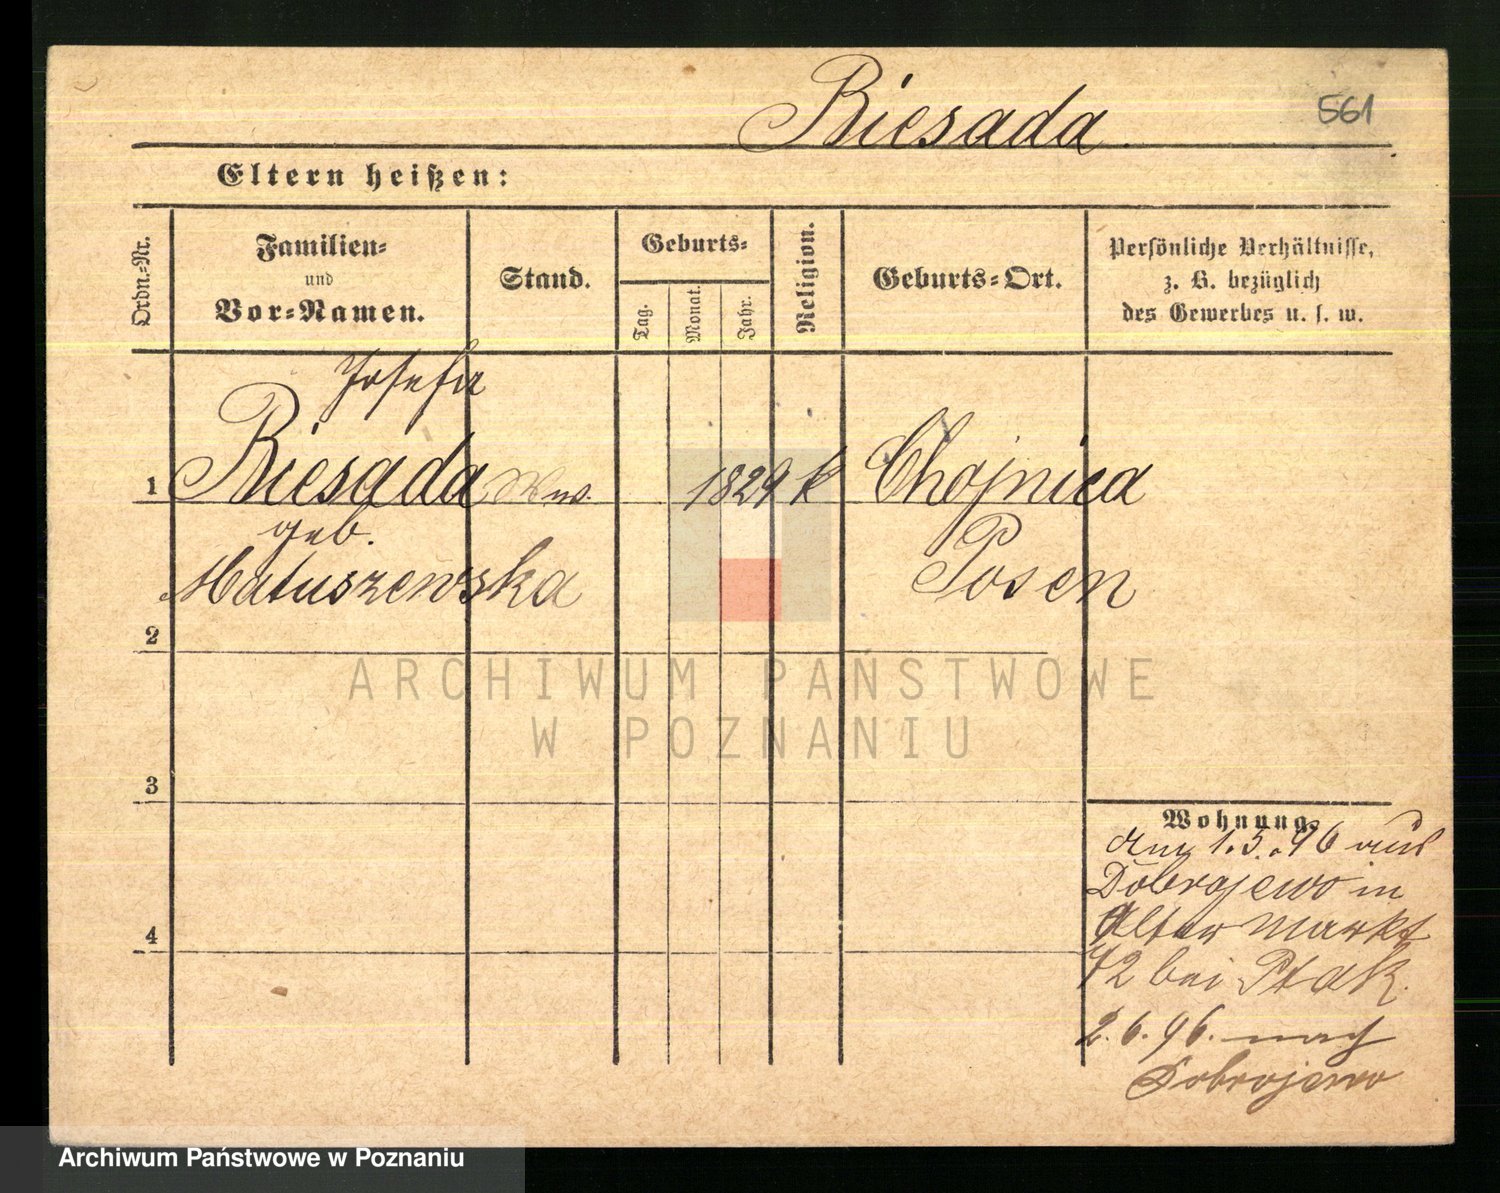 Biesada.
561
Eltern heißen:
Ordn.-Nr.
Familien-
und
Vor-Namen.
Stand.
Geburts-
Tag.
Monat.
Jahr.
Religion.
Geburts-Ort.
Persönliche Verhältnisse,
z. B. bezüglich
des Gewerbes u. s. w.
Josefa
1 Biesada Ww. 1829 k Chojnica
geb.
Matuszewska
Posen
2
ARCHIWUM PAŃSTWOWE
W POZNANIU
3
Wohnung.
1.5.96 aus
Dobrojewo in
Alter Markt
72 bei Ptak.
4
2.6.96. nach
Dobrojewo
Archiwum Państwowe w Poznaniu